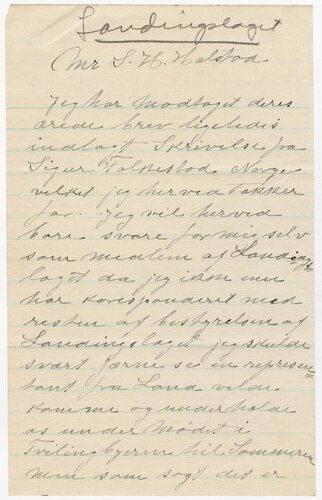 Landingslaget
Mr S. H. Holstad
Jeg har modtaget deres
ærede brev ligeledis
indlagt Skrivelse fra
Sigur Folkestad Norge
vilket jeg herved takker
for. Jeg vil herved
bare svare for mig selv
som medlem af Landings
laget da jeg ikke enu
har korisponderet med
resten af bestyrelsen af
Landingslaget jeg skulde
svært gjærne se en represen
tant fra Land vilde
komme og underholde
os under Mødet i
Tvilingbyerne til Sommeren
men som sagt det er